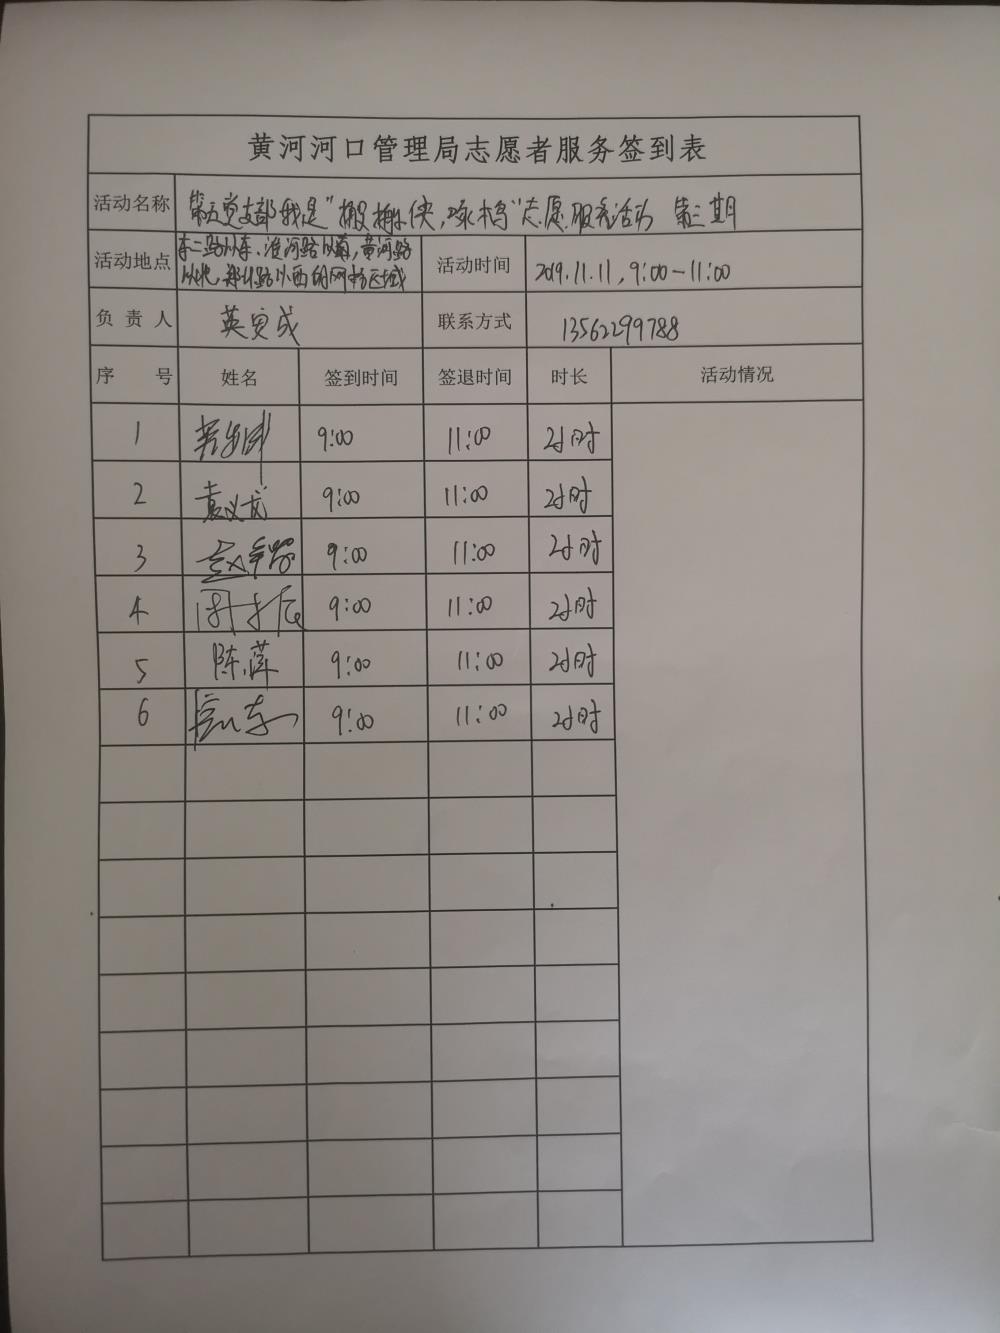 黄河河口管理局志愿者服务签到表
活动名称 第五党支部我是"搬 侠,啄木鸟"志愿服务活动 第三期
活动地点 东二路以东、淮河路以南,黄河路
以北, 路以西的网格区域
活动时间 2019.11.11, 9:00-11:00
负责人 英安成 联系方式 13562299788
序号 姓名 签到时间 签退时间 时长 活动情况
1 9:00 11:00 2小时
2 袁义龙 9:00 11:00 2小时
3 9:00 11:00 2小时
4 9:00 11:00 2小时
5 陈萍 9:00 11:00 2小时
6 9:00 11:00 2小时